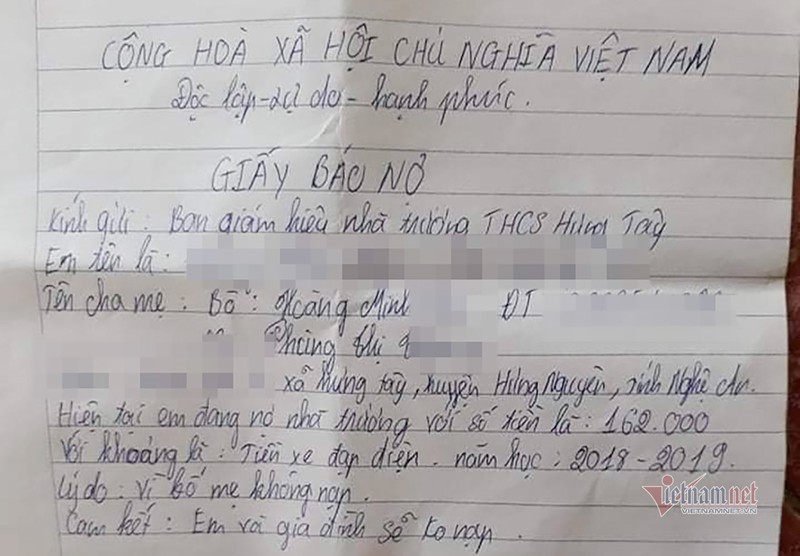 CỘNG HOÀ XÃ HỘI CHỦ NGHĨA VIỆT NAM
Độc lập - tự do - hạnh phúc.
GIẤY BÁO NỢ
Kính gửi : Ban giám hiệu nhà trường THCS Hưng Tây
Em tên là :
Tên cha mẹ : Bố : Hoàng Minh ĐT
Phùng thị
xã hưng tây, huyện Hưng Nguyên, tỉnh Nghệ An.
Hiện tại em đang nợ nhà trường với số tiền là : 162.000
Với khoảng là : Tiền xe đạp điện. năm học : 2018 - 2019.
Lý do : Vì bố mẹ không nạp.
Cam kết : Em và gia đình sẽ ko nạp.
Vietnamnet
VIETNAMNET.VN